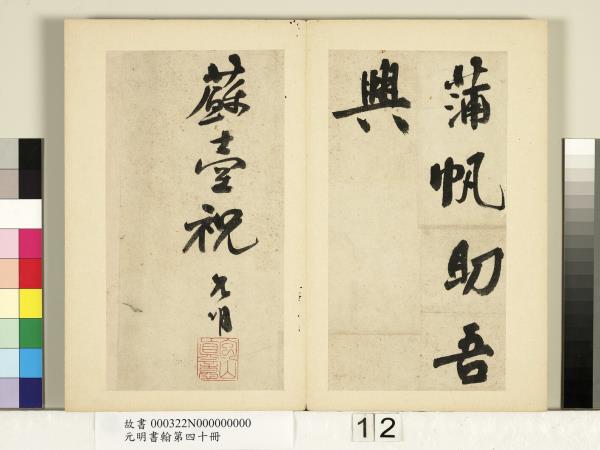 蒲帆助吾
興
蘇臺祝
允明
故書 000322N000000000
元明書翰第四十冊
12